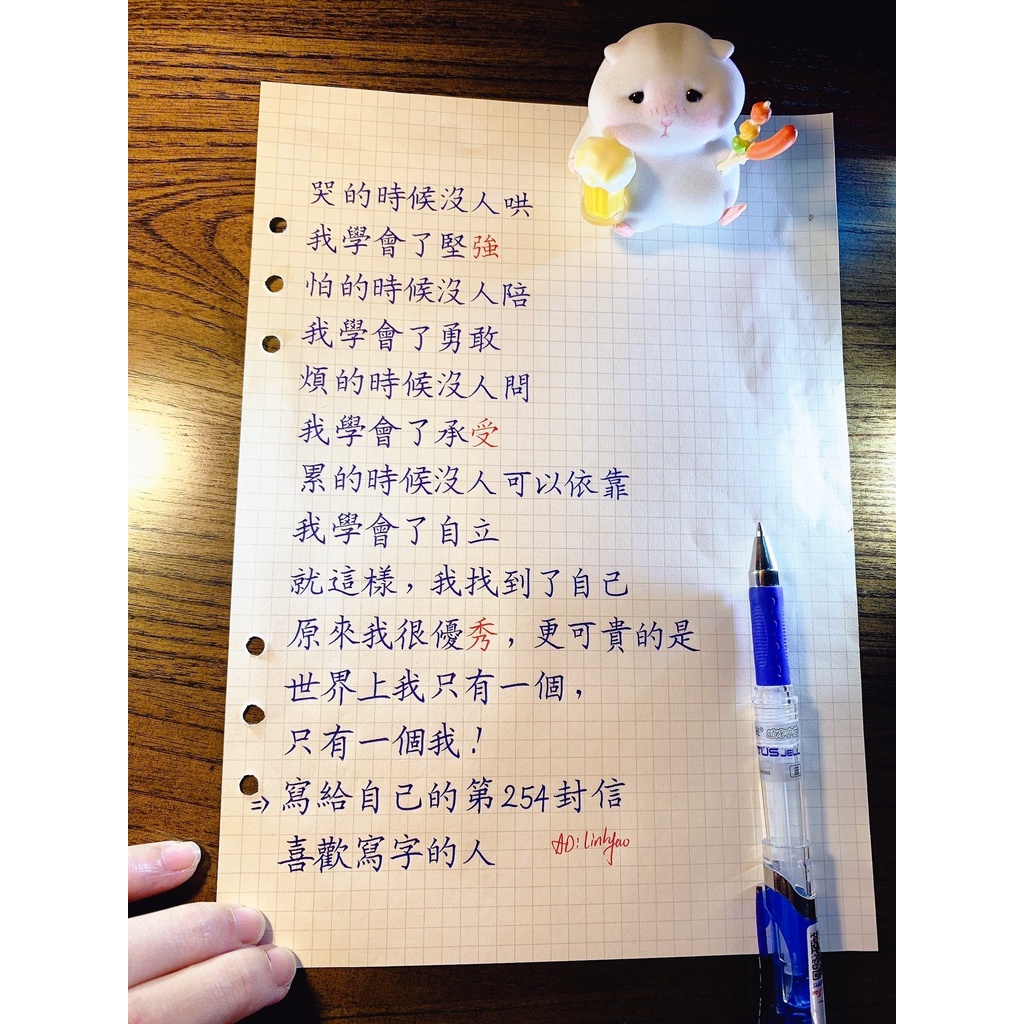 哭的時候沒人哄
我學會了堅強
怕的時候沒人陪
我學會了勇敢
煩的時候沒人問
我學會了承受
累的時候沒人可以依靠
我學會了自立
就這樣，我找到了自己
原來我很優秀，更可貴的是
世界上我只有一個，
只有一個我！
=> 寫給自己的第254封信
喜歡寫字的人
AD: Linhyao
TUS JELL